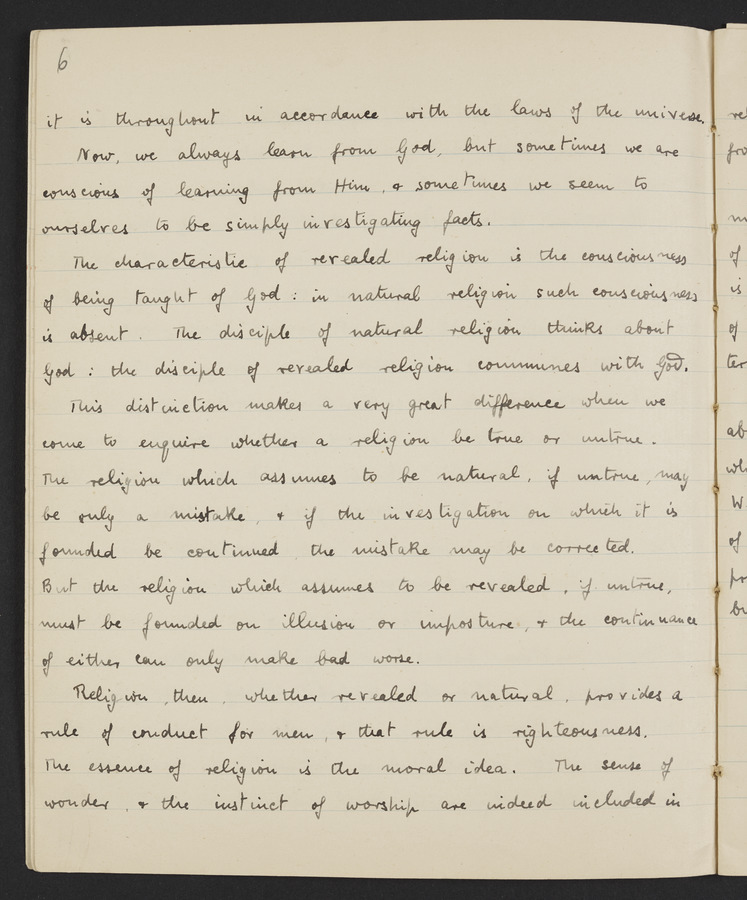 6
it is throughout in accordance with the laws of the universe.
Now, we always learn from God, but sometimes we are
conscious of learning from Him, & sometimes we seem to
ourselves to be simply investigating facts.
The characteristic of revealed religion is the consciousness
of being taught of God: in natural religion such consciousness
is absent. The disciple of natural religion thinks about
God: the disciple of revealed religion communes with God.
This distinction makes a very great difference when we
come to enquire whether a religion be true or untrue.
The religion which assumes to be natural, if untrue, may
be only a mistake, & if the investigation on which it is
founded be continued the mistake may be corrected.
But the religion which assumes to be revealed, if untrue,
must be founded on illusion or imposture, & the continuance
of either can only make bad worse.
Religion, then, whether revealed or natural, provides a
rule of conduct for men, & that rule is righteousness.
The essence of religion is the moral idea. The sense of
wonder, & the instinct of worship are indeed included in
of
is
of